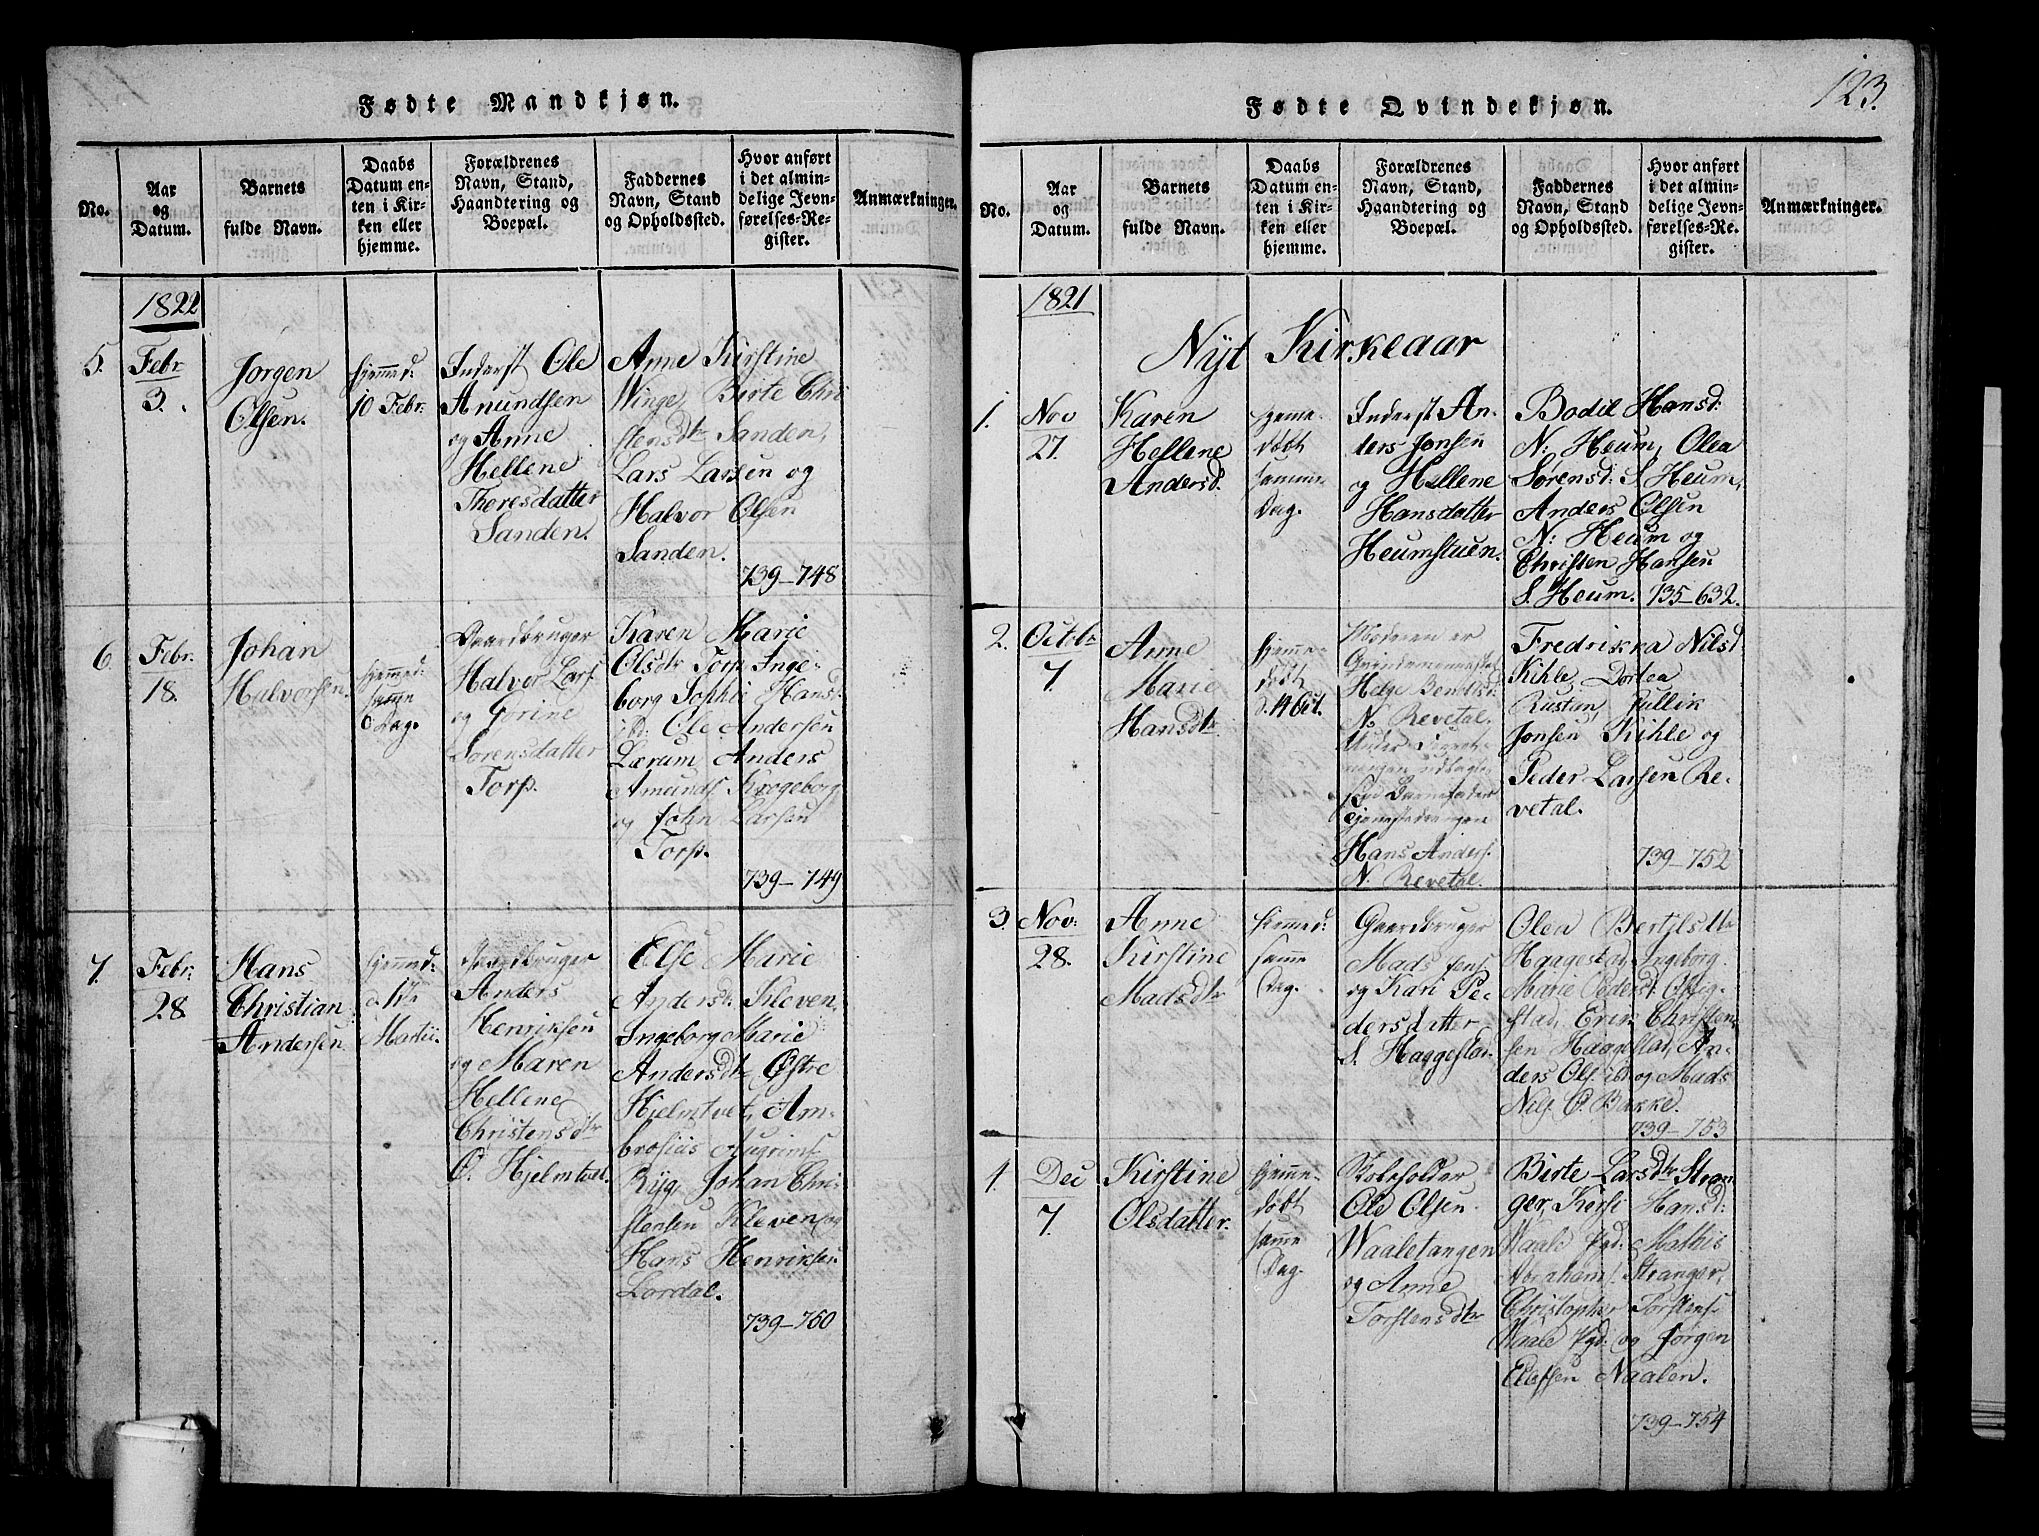 Fødte Mandkjøn.
No.
Aar
og
Datum.
Barnets
fulde Navn.
Daabs
Datum en-
ten i Kir-
ken eller
hjemme.
Forældrenes
Navn, Stand,
Haandtering og
Boepæl.
Faddernes
Navn, Stand
og Opholdssted.
Hvor anført
i det almin-
delige Jevn-
førelses-Re-
gister.
Anmærkninger.
1822
5.
Febr
3.
Jørgen
Olsen.
hjemmed:
10 Febr:
Inderst Ole
Anundsen
og Anne
Hellene
Thoresdatter
Sanden.
Anne Kirstine
Winge, Birte Chri
stensdtr Sanden,
Lars Larsen og
Halvor Olsen
Sanden.
739-748
6.
Febr:
18.
Johan
Halvorsen.
hjemmed:
samme
Dag.
Gaardbruger
Halvor Lars
og Jorine
Sorensdatter
Torp.
Karen Marie
Olsdtr Torp, Inge-
borg Sophie Hans:
ibd: Ole Andersen
Lærum Anders
Amunds Krogeborg
og John Larsen
Torp.
739-749
7.
Febr:
28.
Hans
Christian
Andersen.
hjemmed:
d 17
Martii.
Gaardbruger
Anders
Henriksen
og Maren
Hellene
Christensdtr
Ø. Hjelmtvet.
Else Marie
Andersdr Kleven
Ingeborg Marie
Andersdtr Østre
Hjelmtvet, Am-
brosius Augrims
Ryg, Johan Chri-
stensen Kleven, og
Hans Henriksen
Lordal.
739-760
123.
Fødte Qvindekjøn.
No.
Aar
og
Datum.
Barnets
fulde Navn.
Daabs
Datum en-
ten i Kir-
ken eller
hjemme.
Forældrenes
Navn, Stand,
Haandtering og
Boepæl.
Faddernes
Navn, Stand
og Opholdssted.
Hvor anført
i det almin-
delige Jevn-
førelses-Re-
gister.
Anmærkninger.
1821
Nyt Kirkeaar
1.
Nov
27.
Karen
Hellene
Andersd.
hjeme-
døbt
samme
Dag.
Inderst An-
ders Jonsen
og Hellene
Hansdatter
Heumstuen.
Bodil Hansd:
N: Heum, Olea
Sørensd: S Heum,
Anders Olsen
N: Heum og
Christen Hansen
S. Heum.
135-632.
2.
Octobr
7.
Anne
Marie
Hansdtr
hjemme-
døbt
d. 14 Oct.
Moderen er
Helge Bendtsd:
N: Revetal.
Under
Hans Anders.
N: Revetal.
Fredrikka Nilsd
Kihle, Dortea
Rustan, Jullik
Jonsen Kihle og
Peder Larsen Re-
vetal.
739-752
3.
Nov:
28.
Anne
Kirstine
Madsdtr
hjemmed:
samme
Dag.
Gaardbruger
Mads Jens
og Kari Pe-
dersdatter
S. Haggestad.
Olea Bertelsdtr
Haagestad, Ingeborg
Marie Pedersd: Ollig-
stad, Erik Christen-
sen Haagestad, An-
ders Ols. ibd og Mads
Nils. Ø. Bakke.
739-753
4
Dec
7.
Kirstine
Olsdatter.
hjemme-
døbt
samme
Dag.
Skoleholder
Ole Olsen
Waaletangen
og Anne
Torstensdtr
Birte Larsdtr Stran
ger, Kirsti Hansd:
Waale Pgd: Mathis
Abrahams. Stranger,
Christopher Torstens
Waale Pgd: og Jørgen
Elefsen Naalen.
739-754